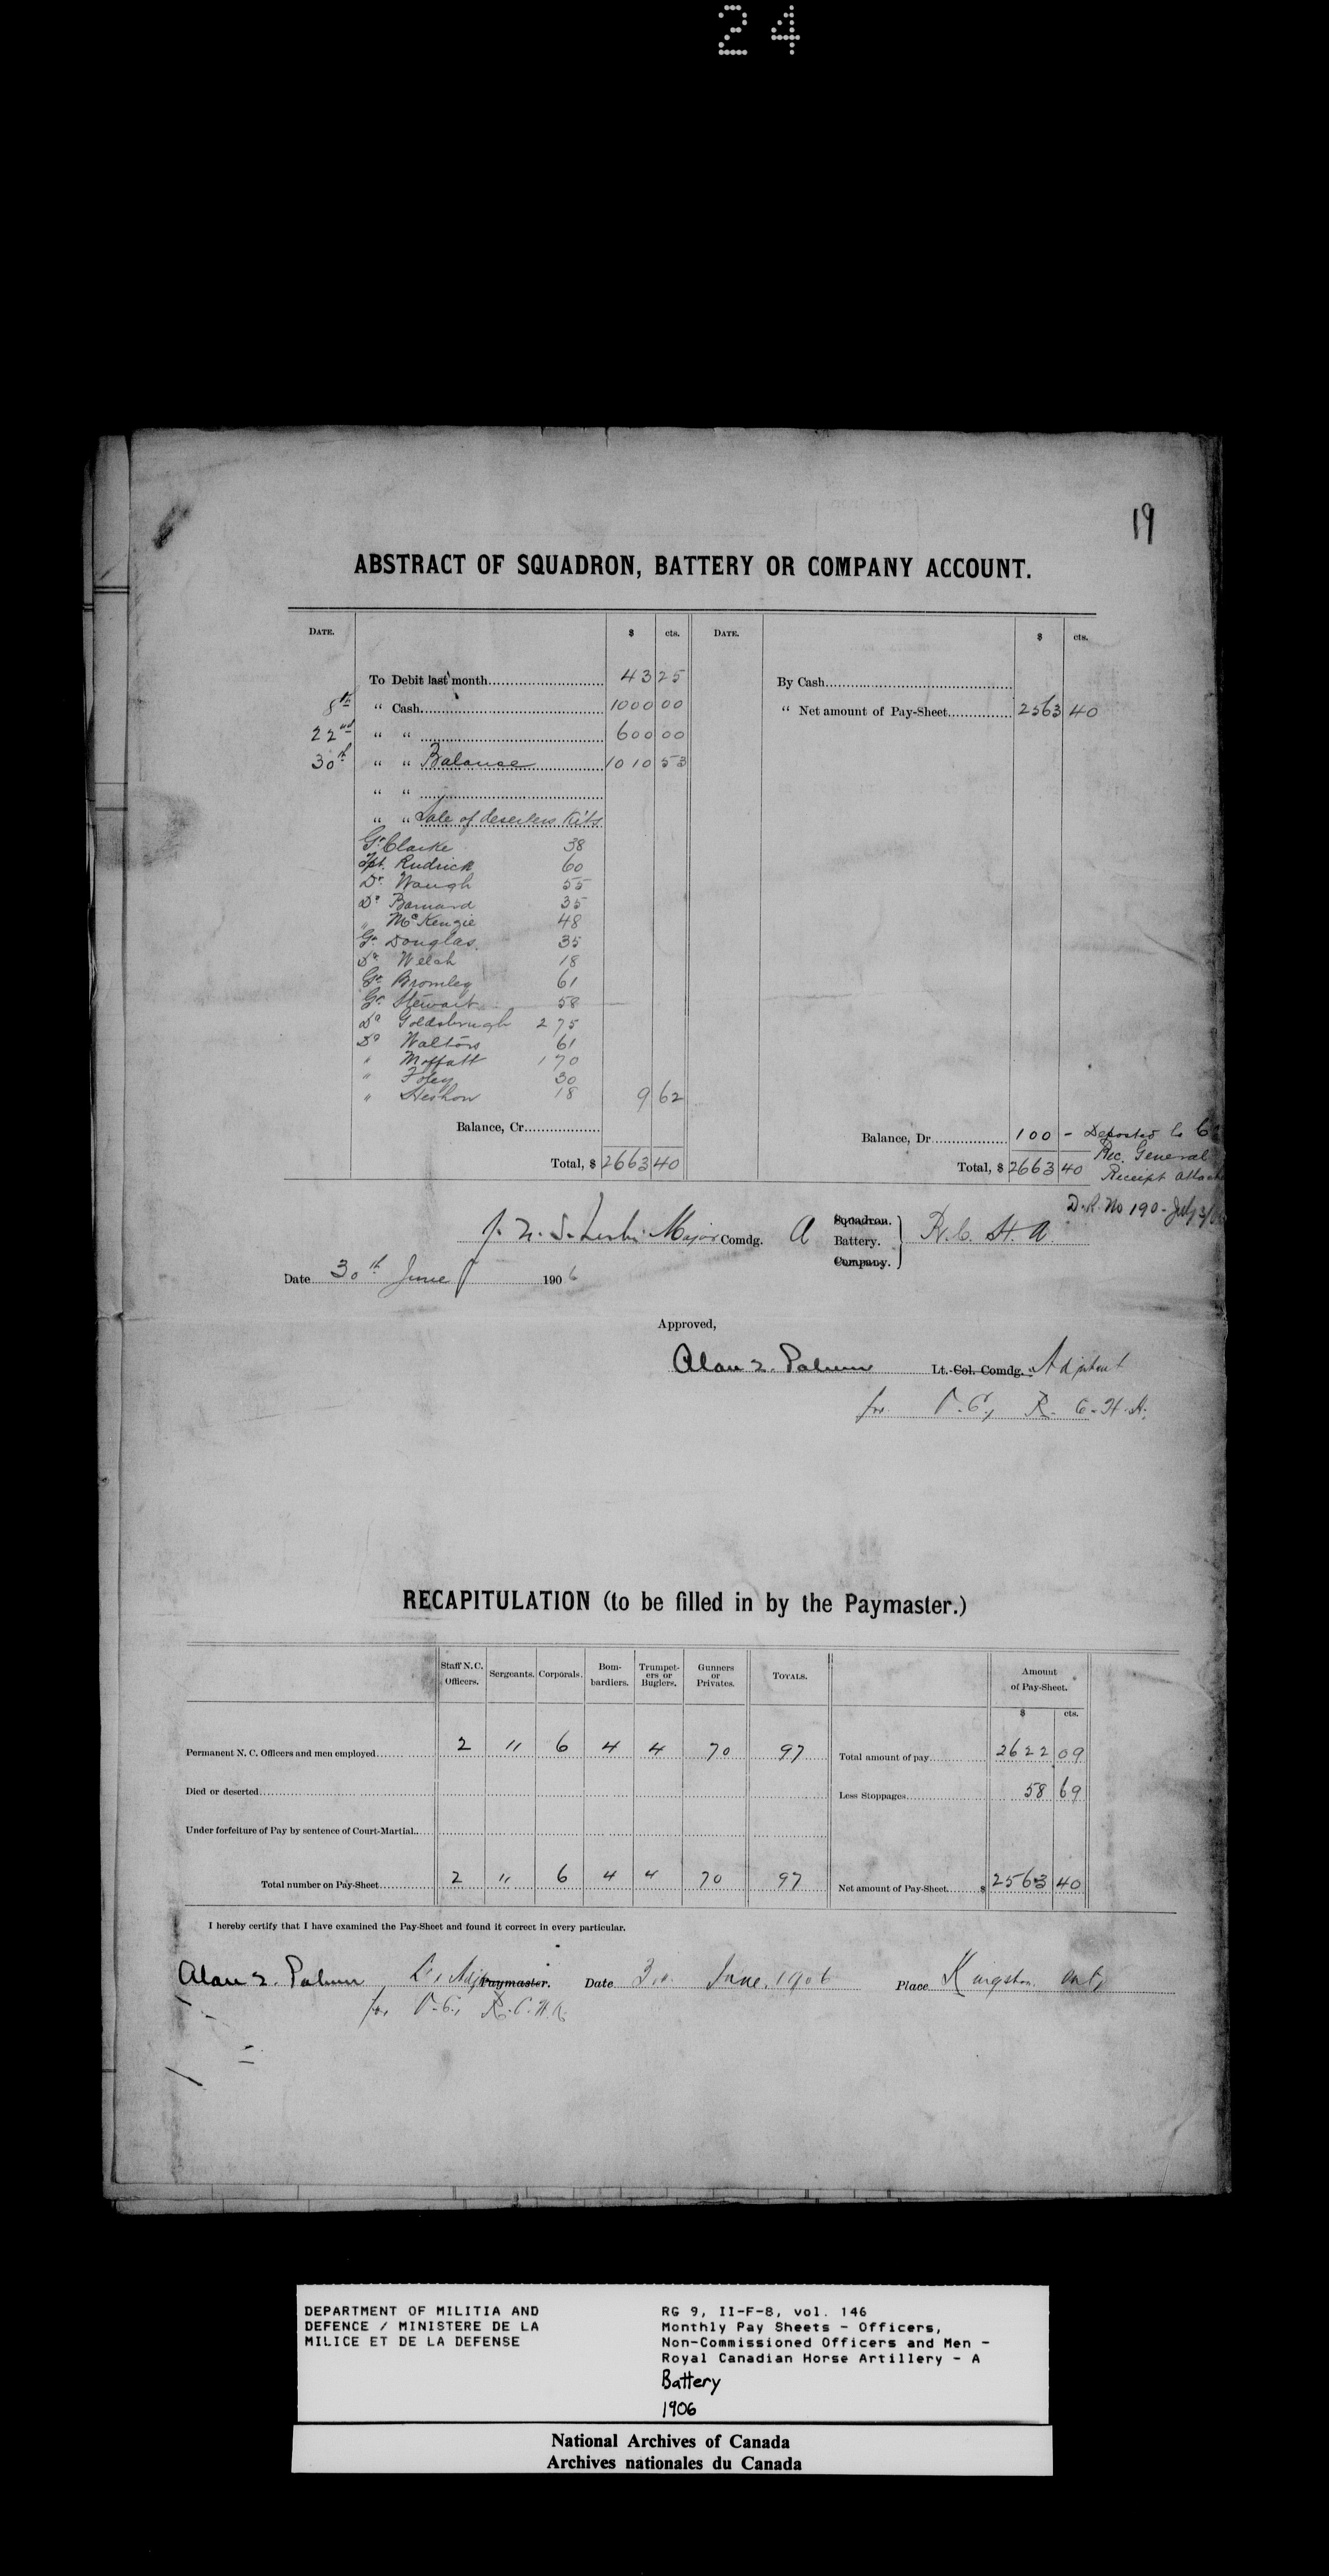 24
19
ABSTRACT OF SQUADRON, BATTERY OR COMPANY ACCOUNT.
DATE. $ cts. DATE. $ cts.
To Debit last month 43 25 By Cash
8th " Cash 1000 00 " Net amount of Pay-Sheet 2563 40
22nd " " 600 00
30th " " Balance 1010 53
" "
" " Sale of deserters Kits
Gr. Clarke 38
Tpt. Rudrick 60
Dr. Waugh 55
Dr. Barnard 35
" McKenzie 48
Gr. Douglas 35
Dr. Welch 18
Gr. Bromley 61
Gr. Stewart 58
Dr. Goldsbrough 2 75
Dr. Walton 61
" Moffatt 1 70
" Foley 30
" 18 9 62
Balance, Cr. Balance, Dr. 100 - Deposited to
Rec. General
Total, $ 2663 40 Total, $ 2663 40 Receipt
D.R. No 190 - July 3/06
Major Comdg. A Squadron. Battery. Company. R.C.H.A.
Date 30th June 1906
Approved,
Alan Z. Palmer Lt. Col. Comdg. Adjutant
for O.C., R.C.H.A.
RECAPITULATION (to be filled in by the Paymaster.)
Staff N.C. Officers. Sergeants. Corporals. Bombardiers. Trumpeters or Buglers. Gunners or Privates. TOTALS. Amount of Pay-Sheet.
$ cts.
Permanent N. C. Officers and men employed 2 11 6 4 4 70 97 Total amount of pay 2622 09
Died or deserted Less Stoppages 58 69
Under forfeiture of Pay by sentence of Court-Martial
Total number on Pay-Sheet 2 11 6 4 4 70 97 Net amount of Pay-Sheet $ 2563 40
I hereby certify that I have examined the Pay-Sheet and found it correct in every particular.
Alan Z. Palmer Paymaster. Date 30 June, 1906 Place Kingston Ont,
for O.C., R.C.H.A.
DEPARTMENT OF MILITIA AND
DEFENCE / MINISTERE DE LA
MILICE ET DE LA DEFENSE
RG 9, II-F-8, vol. 146
Monthly Pay Sheets - Officers,
Non-Commissioned Officers and Men -
Royal Canadian Horse Artillery - A
Battery
1906
National Archives of Canada
Archives nationales du Canada